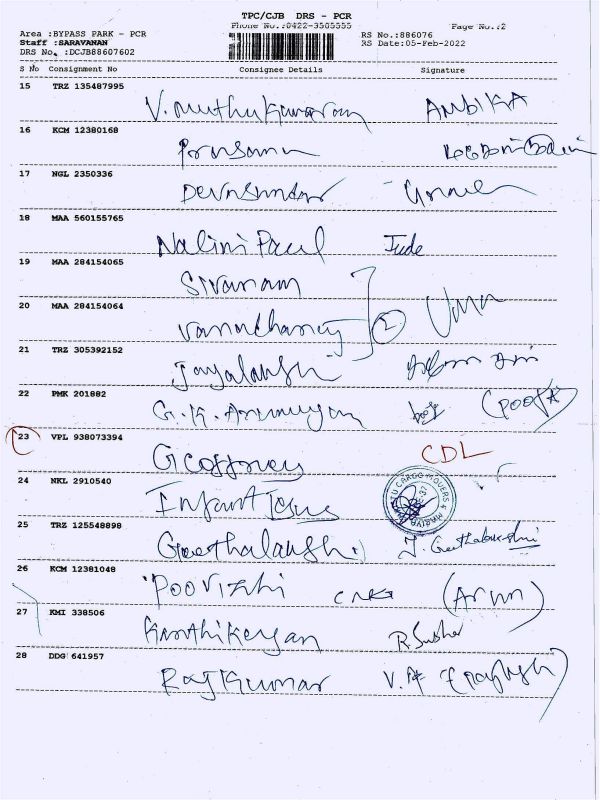 TPC/CJB DRS - PCR
Phone No.:0422-3505555 Page No.:2
Area :BYPASS PARK - PCR RS No.:886076
Staff :SARAVANAN RS Date:05-Feb-2022
DRS No. :DCJB88607602
S No Consignment No Consignee Details Signature
15 TRZ 135487995
V. muthukumaran AMBIKA
16 KCM 12380168
17 NGL 2350336
Devasundar
18 MAA 560155765
Nalini Paul Jude
19 MAA 284154065
Sivaram
20 MAA 284154064
2 Uma
21 TRZ 305392152
Jayalakshi
22 PMK 201882
G.K. (POOJA)
23 VPL 938073394
Geoffrey CDL
24 NKL 2910540
Infant Jesus
CARGO MOVERS
25 TRZ 125548898
Geethalakshi J. Geethalakshmi
26 KCM 12381048
Poovizhi (Arun)
27 KMI 338506
Karthikeyan R. Sudha
28 DDG 641957
Rajkumar V.A